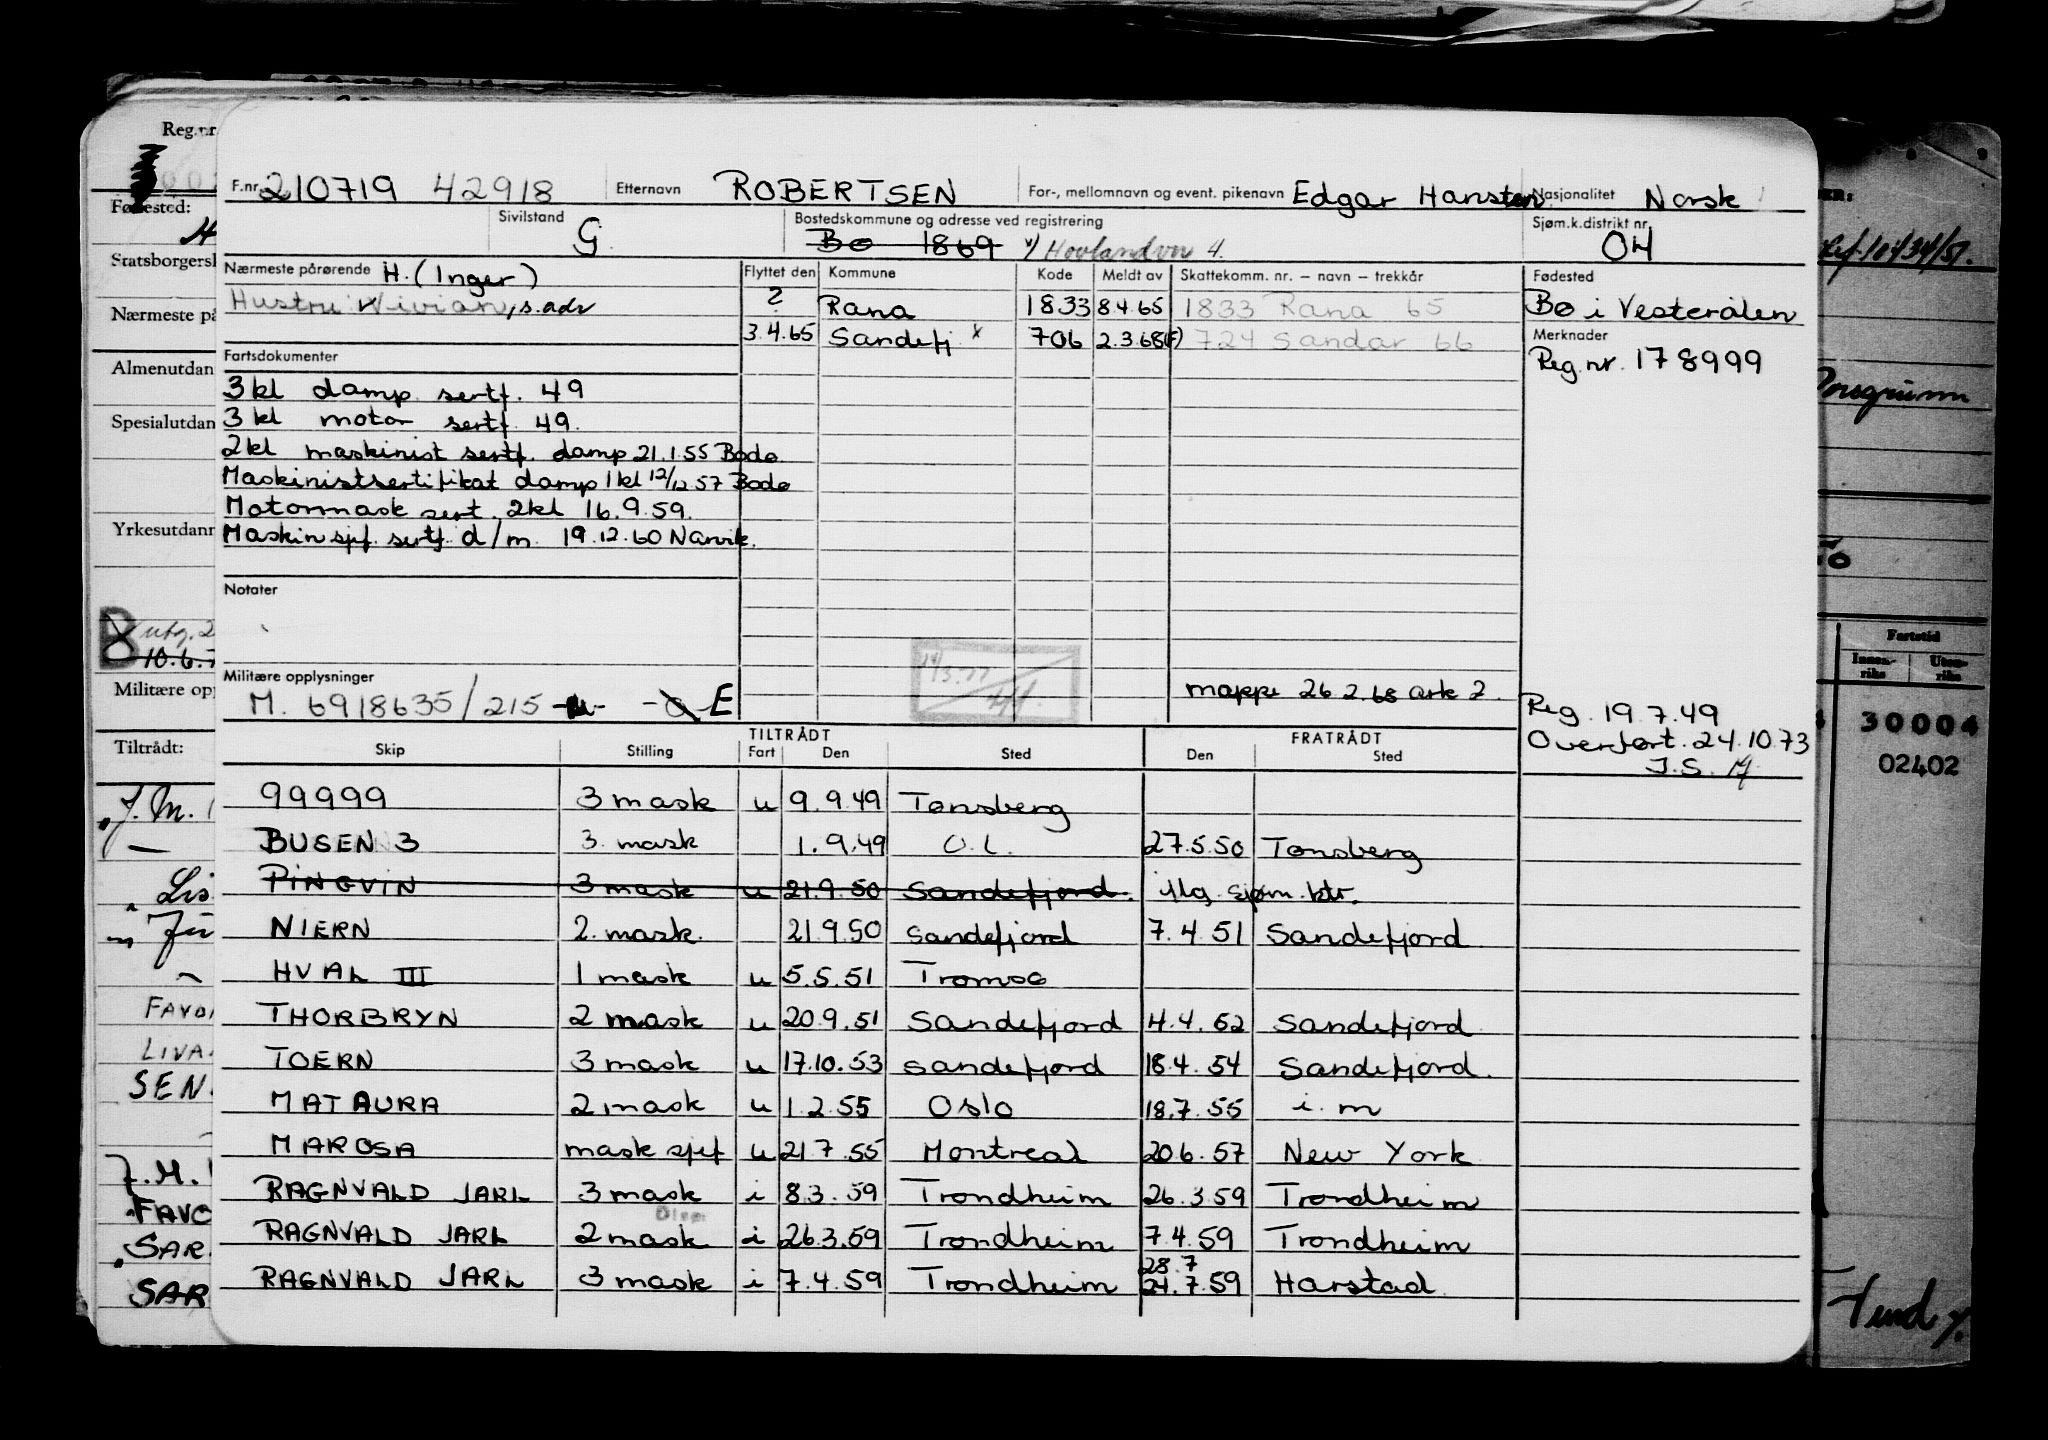 F.nr. 210719 42918 Etternavn ROBERTSEN For-, mellomnavn og event. pikenavn Edgar Hansten Nasjonalitet Norsk
Sivilstand G Bostedskommune og adresse ved registrering Bø 1869 v/ Hovlandvn 4. Sjøm.k.distrikt nr. 04
Nærmeste pårørende H. (Inger)
Hustru Wivian, s. adr
Flyttet den Kommune Kode Meldt av Skattekomm. nr. – navn – trekkår
? Rana 1833 8.4.65 1833 Rana 65
3.4.65 Sandefj x 706 2.3.68(F) 724 Sandar 66
Fødested
Bø i Vesterålen
Merknader
Reg. nr. 178999
Fartsdokumenter
3 kl damp sertf. 49
3 kl motor sertf. 49.
2 kl maskinist sertf. damp 21.1.55 Bodø
Maskinistsertifikat damp 1 kl 12/12 57 Bodø
Motormask sert. 2kl 16.9.59.
Maskinsjef. sertf. d/m. 19.12.60 Narvik.
Notater
Militære opplysninger
M. 6918635/215 E
mappe 26.2.68 ark 2.
Reg. 19.7.49
Overført. 24.10.73
J.S.
TILTRÅDT FRATRÅDT
Skip Stilling Fart Den Sted Den Sted
99999 3 mask u 9.9.49 Tønsberg
BUSEN 3 3. mask 1.9.49 O.L. 27.5.50 Tønsberg
PINGVIN 3 mask u 21.9.50 Sandefjord. ilg. sjøm. ktr.
NIERN 2. mask. 21.9.50 Sandefjord 7.4.51 Sandefjord
HVAL III 1 mask u 5.5.51 Tromsø
THORBRYN 2 mask u 20.9.51 Sandefjord 4.4.52 Sandefjord
TOERN 3 mask u 17.10.53 Sandefjord 18.4.54 Sandefjord.
MATAURA 2 mask u 1.2.55 Oslo 18.7.55 i. m
MAROSA mask sjef u 21.7.55 Montreal 20.6.57 New York
RAGNVALD JARL 3 mask i 8.3.59 Trondheim 26.3.59 Trondheim
Disp.
RAGNVALD JARL 2 mask i 26.3.59 Trondheim 7.4.59 Trondheim
28.7
RAGNVALD JARL 3 mask i 7.4.59 Trondheim 24.7.59 Harstad
Reg.nr
Fødested:
Statsborgersk
Nærmeste på
Almenutdan
Spesialutdan
Yrkesutdann
B utg. 2
10.6.
Militære opp
Tiltrådt:
J. M.
Lis
FAVO
LIVA
SEN
J.M.
FAVO
SAR
SAR
Fartstid
Innen-
riks
Uten-
riks
30004
02402